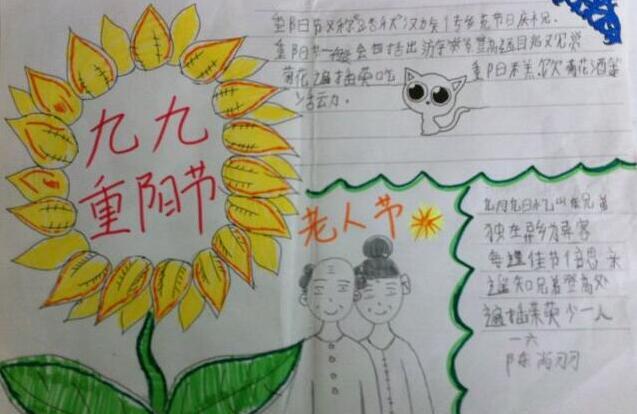 重阳节又称"踏秋"汉族传统节日庆祝.
重阳节一般会包括出游赏景登高远目
菊花遍插茱萸吃 重阳羔饮菊花酒等
活动.
九九
重阳节
老人节
九月九日忆山东兄弟
独在异乡为异客
每逢佳节倍思亲
遥知兄弟登高处
遍插茱萸少一人
一六
陈